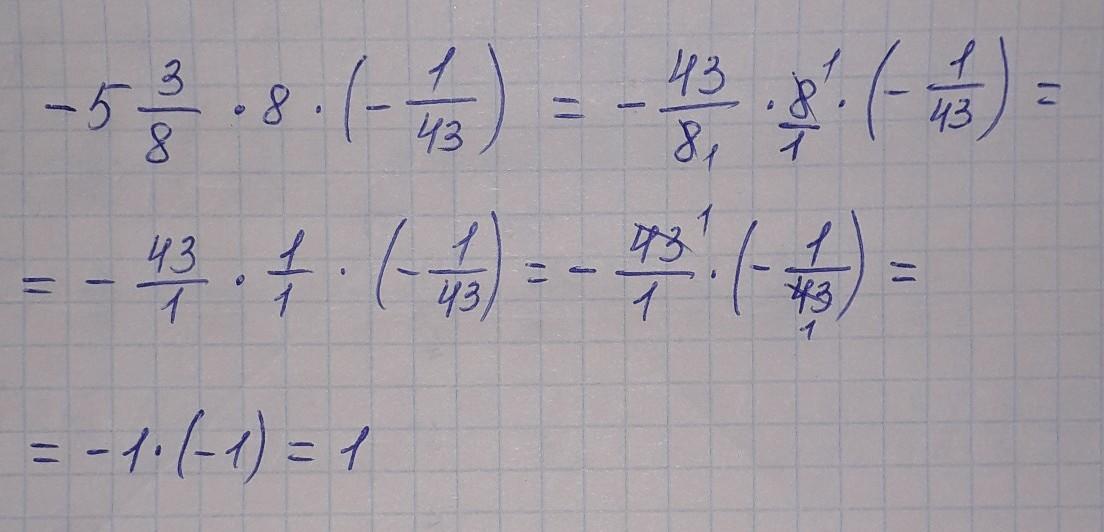 -5 3/8 · 8 · (- 1/43) = - 43/8 1 · 8 1/1 · (- 1/43) =
= - 43/1 · 1/1 · (- 1/43) = - 43 1/1 · (- 1/43 1) =
= -1 · (-1) = 1